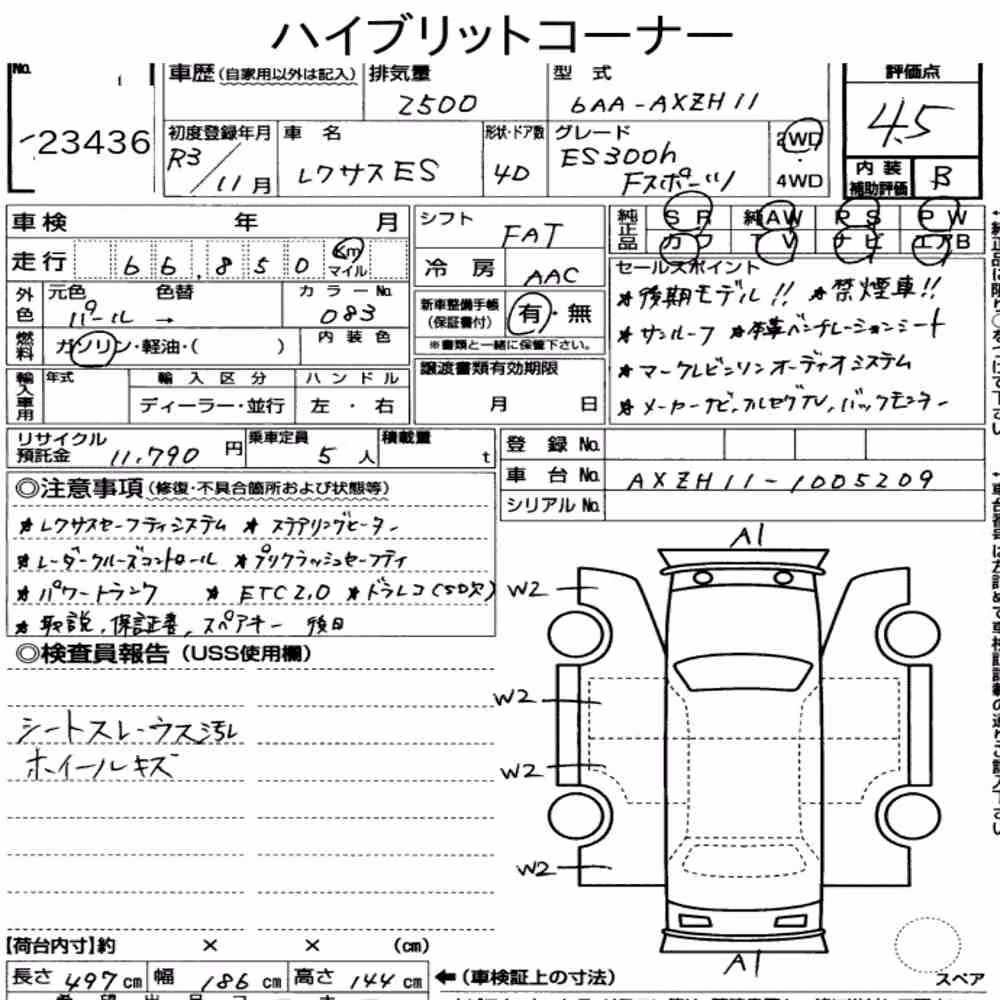 ハイブリットコーナー
No.
23436
車歴(自家用以外は記入)
排気量
2500
型式
6AA-AXZH11
評価点
4.5
初度登録年月
R3/11月
車名
レクサスES
形状・ドア数
4D
グレード
ES300h
Fスポーツ
2WD
・
4WD
内装
補助評価
B
車検 年 月
シフト
FAT
純正品
SR 純AW PS PW
カワ TV ナビ エアB
走行 66,850 Km マイル
冷房
AAC
セールスポイント
★後期モデル!! ★禁煙車!!
★サンルーフ ★本革ベンチレーションシート
★マークレビンソンオーディオシステム
★メーカーナビ,フルセグTV,バックモニター
外色
元色 色替
パール →
カラーNo.
083
新車整備手帳
(保証書付)
有・無
※書類と一緒に保管下さい。
燃料
ガソリン・軽油・( )
内装色
輸入車用
年式
輸入区分
ディーラー・並行
ハンドル
左・右
譲渡書類有効期限
月 日
リサイクル
預託金
11,790 円
乗車定員
5 人
積載量
t
登録No.
車台No.
AXZH11-1005209
シリアルNo.
◎注意事項(修復・不具合箇所および状態等)
★レクサスセーフティシステム ★ステアリングヒーター
★レーダークルーズコントロール ★プリクラッシュセーフティ
★パワートランク ★ETC2.0 ★ドラレコ(SD欠)
★取説,保証書,スペアキー 後日
◎検査員報告(USS使用欄)
シートスレ・ウス汚レ
ホイールキズ
A1
W2
W2
W2
W2
A1
スペア
【荷台内寸】約 × × (cm)
長さ 497cm 幅 186cm 高さ 144cm
←(車検証上の寸法)